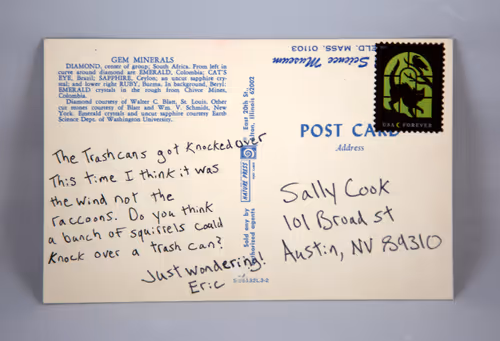 GEM MINERALS
DIAMOND, center of group; South Africa. From left in
curve around diamond are EMERALD, Colombia; CAT'S
EYE, Brazil; SAPPHIRE, Ceylon; an uncut sapphire crys-
tal; and lower right RUBY, Burma. In background, Beryl;
EMERALD crystals in the rough from Chivor Mines,
Columbia.
Diamond courtesy of Walter C. Blatt, St. Louis. Other
cut stones courtesy of Blatt and Wm. V. Schmidt, New
York. Emerald crystals and uncut sapphire courtesy Earth
Science Dept. of Washington University.
The Trashcans got Knocked over
This time I think it was
the wind not the
raccoons. Do you think
a bunch of squirrels could
Knock over a trash can?
Just wondering.
Eric
Sold any by
authorized agents
NATURE PRESS
East 20th St.
Alton, Illinois 62002
Science Museum
IELD, MASS. 01103
USA FOREVER
POST CARD
Address
Sally Cook
101 Broad st
Austin, NV 89310